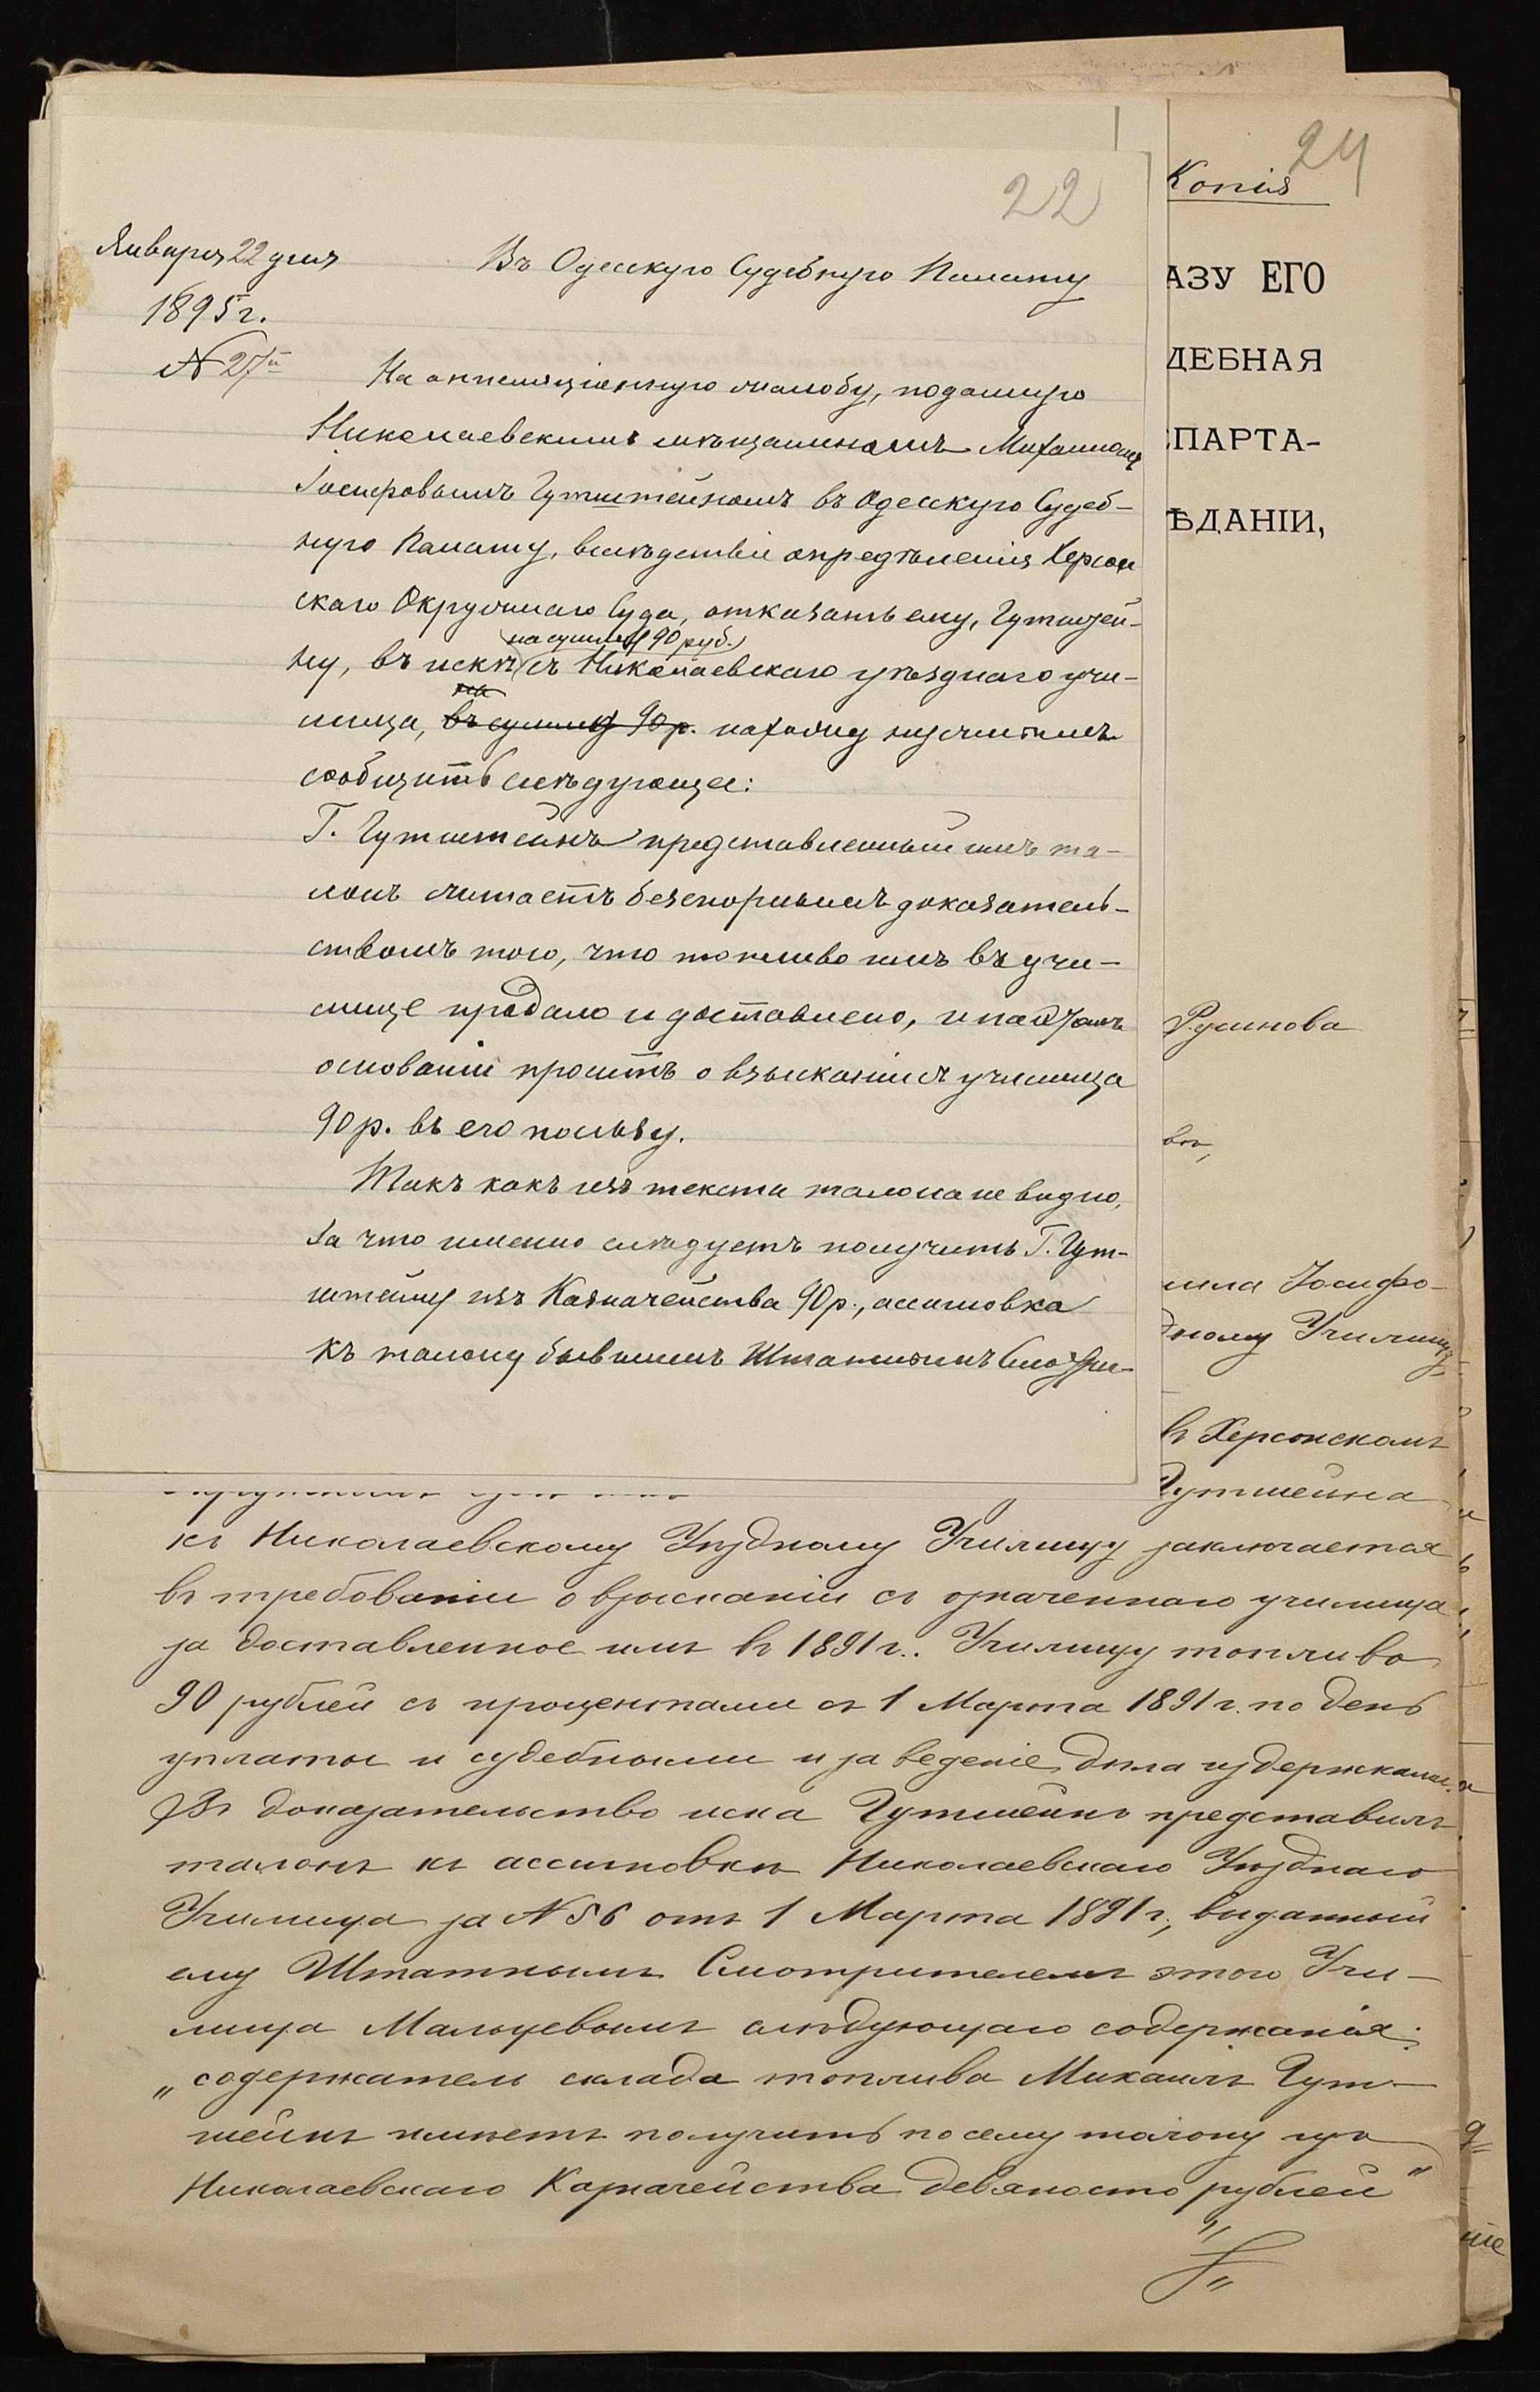 22
Января 22 дня
1895 г.
№ 27й
Въ Одесскую Судебную Палату
На аппеляціонную жалобу, поданную
Николаевскимъ мѣщаниномъ Михаиломъ
Іосифовымъ Гутштейномъ въ Одесскую Судеб-
ную Палату, вслѣдствіе опредѣленія Херсон
скаго Окружнаго Суда, отказать ему, Гутштей-
на сумму 90 руб.
ну, въ искѣ съ Николаевскаго уѣзднаго учи-
на
лища, въ сумму 90 р. нахожу нужнымъ
сообщить слѣдующее:
Г. Гутштейнъ представленный имъ та-
лонъ считаетъ безспорнымъ доказатель-
ствомъ того, что топливо имъ въ учи-
лище продано и доставлено, и на этомъ
основаніи проситъ о взысканіи съ училища
90 р. въ его пользу.
Такъ какъ изъ текста талона не видно,
за что именно слѣдуетъ получить Г. Гут-
штейну изъ Казначейства 90 р., ассигновка
къ талону бывшимъ Штатнымъ Смотри-
24
Копія
АЗУ ЕГО
ДЕБНАЯ
ПАРТА-
ѢДАНІИ,
Русинова
въ,
ила Іосифо-
дному Училищу
въ Херсонскомъ
Гутшейна
къ Николаевскому Уѣздному Училищу заключается
въ требованіи о взысканіи съ означеннаго училища
за доставленное имъ въ 1891 г. Училищу топливо
90 рублей съ процентами съ 1 Марта 1891 г. по день
уплаты и судебными и за веденіе дѣла издержками.
Въ доказательство иска Гутшейнъ представилъ
талонъ къ ассигновкѣ Николаевскаго Уѣзднаго
Училища за № 56 отъ 1 Марта 1891 г., выданный
ему Штатнымъ Смотрителемъ этого Учи-
лища Мальцевымъ слѣдующаго содержанія:
„содержатель склада топлива Михаилъ Гут-
шейнъ имѣетъ получить по сему талону изъ
Николаевскаго Казначейства девяносто рублей"